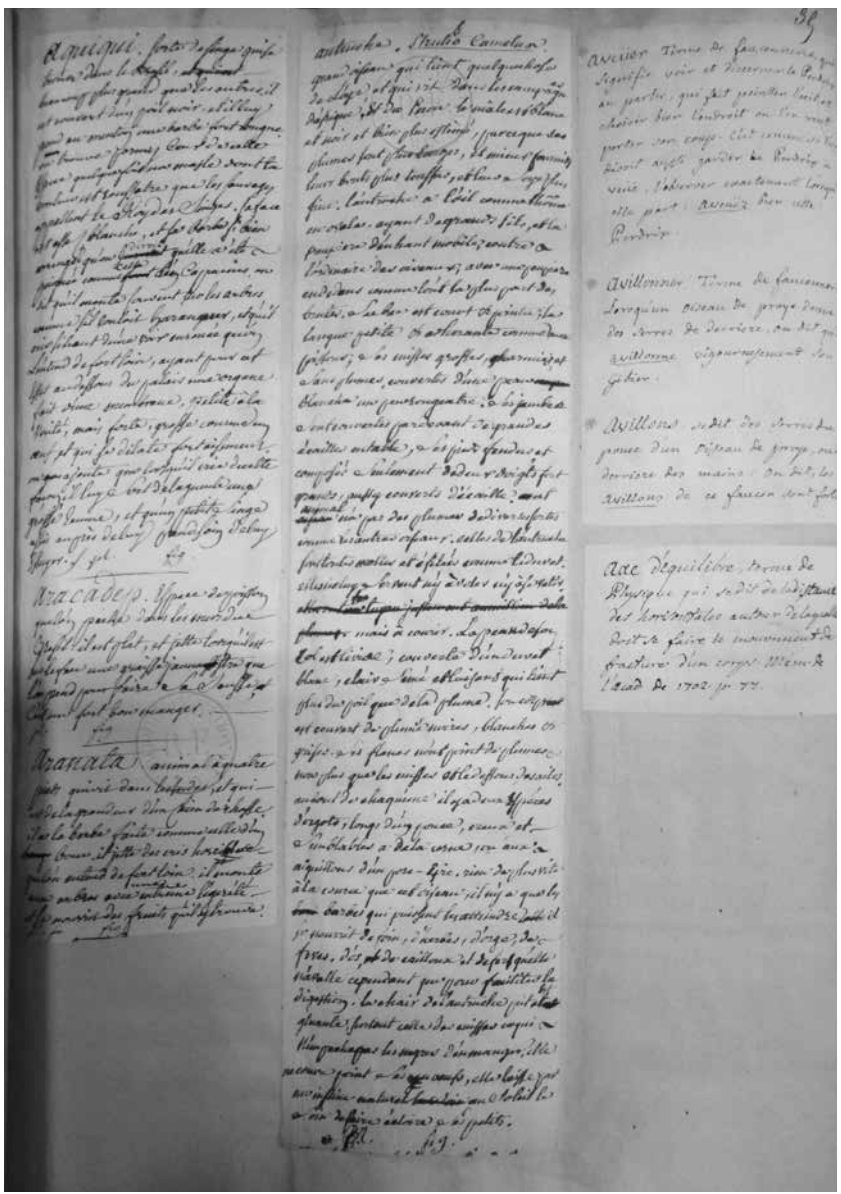 39
aquiqui. sorte de singe qui se
trouve dans le Bresil,
beaucoup plus grand que les autres, il
est couvert d'un poil noir, et il luy
pend au menton une barbe fort longue
on trouve parmy ceux de cette
espece quelquefois un masle dont la
couleur est roussatre que les sauvages
appellent le Roy des Singes. sa face
est assés blanche, et sa barbe si bien
arrangée qu'on diroit qu'elle a été
celle des Capucins, on
dit qu'il monte souvent sur les arbres
comme s'il vouloit haranguer, et qu'il
d'une voix
l'entend de fort loin, ayant pour cet
effet au dessous du palais une organe
fait d'une membrane, petite à la
verité, mais forte, grosse comme un
œuf, et qui se dilate fort aisement.
on ajoute que lorsqu'il crie de cette
façon, il luy sort de la gueule une
grosse écume, et qu'un petit singe
assis auprès de luy
fig
aracadep. Espece de poisson
que l'on pesche dans les mers du
Bresil, il est plat, et jette lorsqu'il est
une graisse jaunastre que
l'on prend pour faire de la
fort bon manger.
fig
aranata animal à quatre
pieds qui vit dans les Indes, et qui
est de la grandeur d'un chien de chasse
il a la barbe faite comme celle d'un
bouc, il jette des cris horribles
qu'on entend de fort loin. il monte
aux arbres avec une extreme legereté
et se nourrit des fruits qu'il y trouve.
fig
autruche. Struthio Camelus.
grand oiseau qui tient quelque chose
de l'oye et qui vit dans les campagnes
d'afrique et du Perou. le male est blanc
et noir et bien plus estimé, parceque ses
plumes sont plus larges, et mieux fournies
leurs bouts plus touffus, et leur soye plus
fine. l'autruche a l'œil comme l'homme
en ovale, ayant de grands cils, et la
paupiere d'enhaut mobile, contre
l'ordinaire des oiseaux, avec une paupiere
en dedans comme l'ont la plus part des
brutes. Le bec est court et pointu; la
langue petite et adherante comme aux
poissons; les cuisses grosses, charnues et
sans plumes, couvertes d'une peau
blanche un peu rougeatre. les jambes
sont couvertes par devant de grandes
écailles en table, les pieds fendus et
composés seulement de deux doigts fort
grands, aussy couverts d'écailles
animal n'a pas des plumes de diverses sortes
comme les autres oiseaux. celles de l'autruche
sont toutes molles et éfilées comme le duvet.
elles ne luy servent ny à voler ny
mais à courir. La peau de son
col est livide, couverte d'un duvet
blanc, clair semé et luisant qui tient
plus du poil que de la plume. son corps
est couvert de plumes noires, blanches et
grises. ses flancs n'ont point de plumes
non plus que les cuisses et le dessous des ailes.
au bout de chaqu'une il y a deux Especes
d'ergots, longs d'un pouce, creux et
semblables à de la corne, ou aux
aiguillons d'un porc-Epic. rien de plus vite
à la course que cet oiseau, il n'y a que les
barbes qui puissent les atteindre il
se nourrit de foin, d'herbes, d'orge, de
feves, d'os, et de cailloux et de fer qu'elle
n'avalle cependant que pour faciliter la
digestion. la chair de l'autruche est
gluante, surtout celle des cuisses ce qui
n'empeche pas les negres d'en manger, elle
ne couve point ses œufs, elle laisse par
un instinc naturel au Soleil le
soin de faire éclorre ses petits.
Pl. fig.
aveuer Terme de fauconnerie, qui
signifie voir et discerner la Perdrix
au partir, qui fait pointer l'œil et
choisir bien l'endroit où l'on veut
porter son coup. C'est comme
garder la Perdrix à
veüe, l'observer exactement lorsqu'
elle part: aveuez bien cette
Perdrix.
avillonner Terme de fauconnerie
Lorsqu'un oiseau de proye donne
des serres de derriere, on dit qu'il
avillonne vigoureusement son
gibier.
avillons se dit des serres du
pouce d'un oiseau de proye, ou
derriere des mains: On dit, les
avillons de ce faucon sont forts
axe d'équilibre, terme de
Physique qui se dit de la distance
des horizontales autour de laquelle
doit se faire le mouvement de
fracture d'un corps. Mém. de
l'acad de 1702 p. 77.